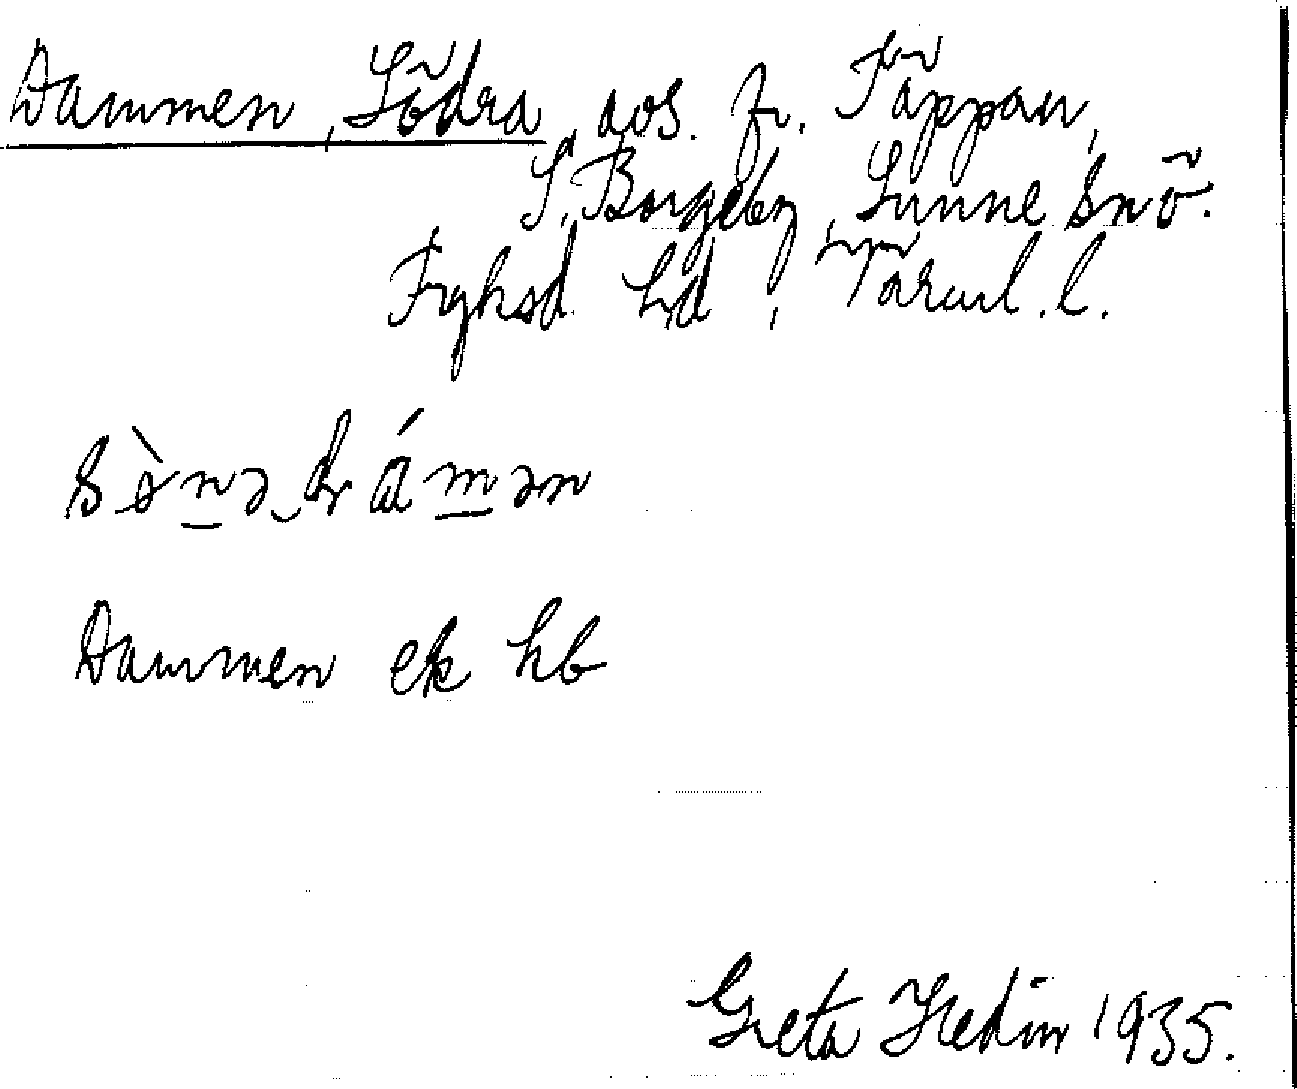 Dammen, Södra, aos. fr. Täppan,
S. Borgeby, Sunne snö.
Fryksd. hd, Värml. l.
Dammen ek hb
Greta Hedin 1935.